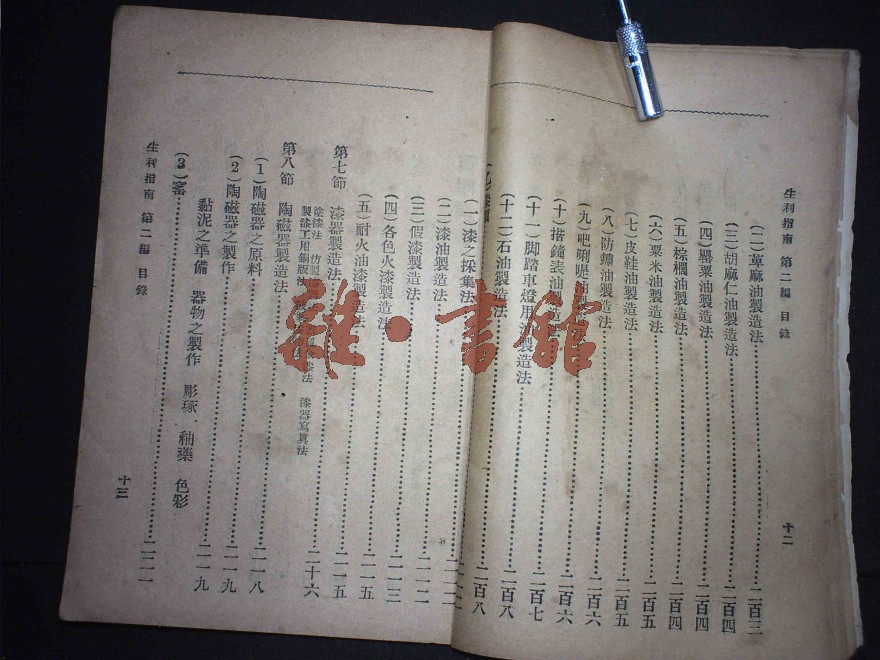 生利指南 第二編 目錄 十二
(二)萆麻油製造法 二百三
(三)胡麻仁油製造法 二百四
(四)罌粟油製造法 二百四
(五)棕櫚油製造法 二百四
(六)粟米油製造法 二百五
(七)皮鞋油製造法 二百五
(八)防銹油製造法 二百六
(九)吧唎㗎油製造法 二百六
(十)搽鐘表油製造法 二百六
(十一)脚踏車燈用油製造法 二百七
(十二)石油製造法 二百八
(一)漆之採集法
(二)漆油製造法
(三)假漆製造法 二一二
(四)各色火漆製造法 二一三
(五)耐火油漆製造法 二一五
第七節 漆器製造法 二一五
塗漆法 仿製 漆法 漆器寫眞法
製漆工用銅版法 二十六
第八節 陶磁器製造法
(1)陶磁器之原料 二一八
(2)陶磁器之製作 二一九
黏泥之準備 器物之製作 彫琢 釉藥 色彩 二一九
(3)窰 二二一
生利指南 第二編 目錄 十三
雜·書館